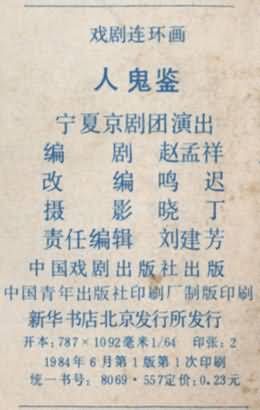 戏剧连环画
人鬼鉴
宁夏京剧团演出
编 剧 赵孟祥
改 编 鸣 迟
摄 影 晓 丁
责任编辑 刘建芳
中国戏剧出版社出版
中国青年出版社印刷厂制版印刷
新华书店北京发行所发行
开本:787×1092毫米1/64 印张:2
1984年6月第1版第1次印刷
统一书号: 8069·557定价:0.23元